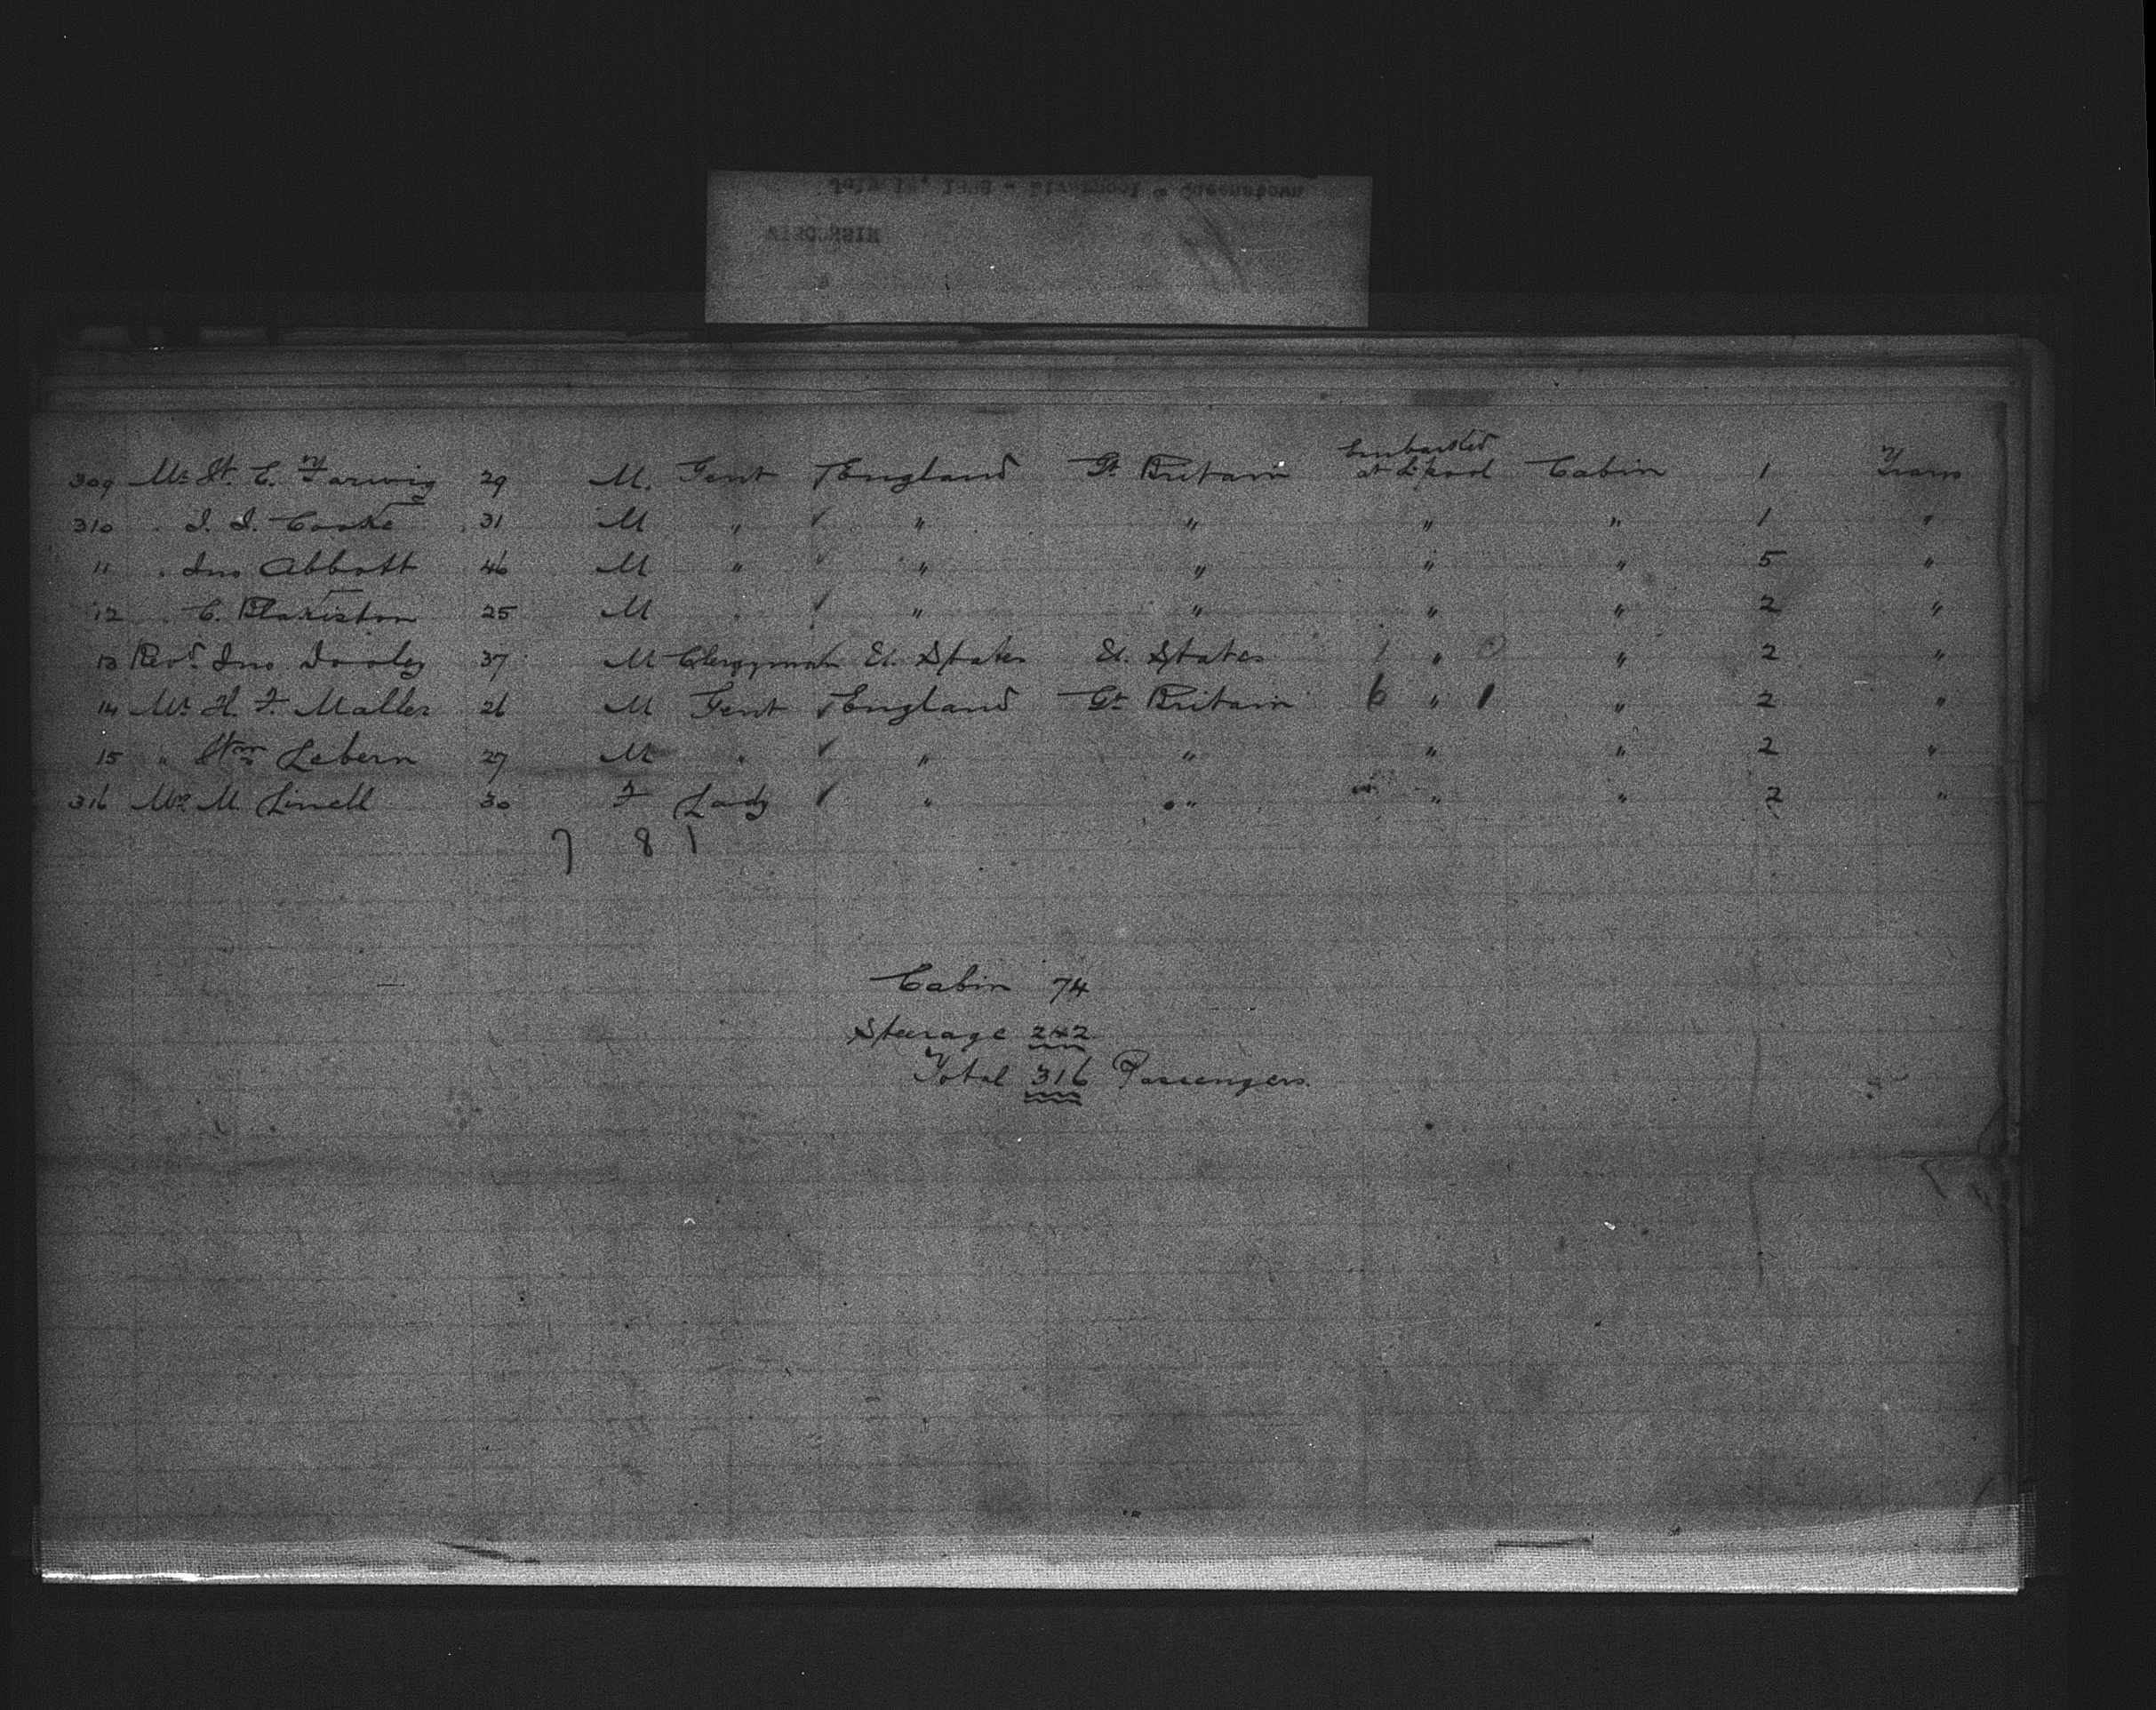 WISCONSIN
Embarked
309 Mr. W. C. Farwig 29 M. Gent England Gt Britain at L'pool Cabin 1 Trans
310 " J. J. Cooke 31 M " " " " " 1 "
11 " Jno Abbott 46 M " " " " " 5 "
12 " C. Blakiston 25 M " " " " " 2 "
13 Revd. Jno Dooley 37 M Clergyman U. States U. States 1 " 0 " 2 "
14 Mr H. F. Maller 26 M Gent England Gt Britain 6 " 1 " 2 "
15 " Wm Lebern 27 M " " " " " 2 "
316 Mrs M. Linell 30 F Lady " " " " 2 "
7 8 1
Cabin 74
Steerage 242
Total 316 Passengers.